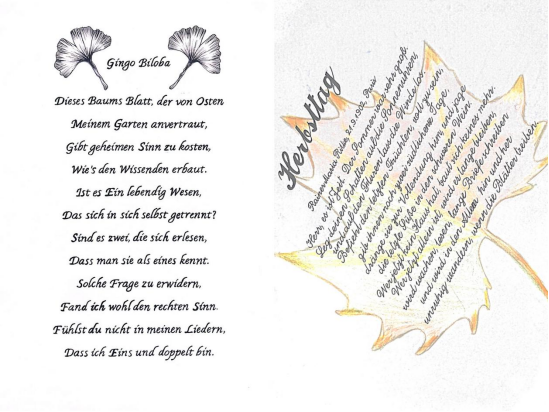 Gingo Biloba
Dieses Baums Blatt, der von Osten
Meinem Garten anvertraut,
Gibt geheimen Sinn zu kosten,
Wie's den Wissenden erbaut.
Ist es Ein lebendig Wesen,
Das sich in sich selbst getrennt?
Sind es zwei, die sich erlesen,
Dass man sie als eines kennt.
Solche Frage zu erwidern,
Fand ich wohl den rechten Sinn.
Fühlst du nicht in meinen Liedern,
Dass ich Eins und doppelt bin.
Herbsttag
Rainer Maria Rilke, 21.9.1902, Paris
Herr, es ist Zeit. Der Sommer war sehr groß.
Leg deinen Schatten auf die Sonnenuhren,
und auf den Fluren lass die Winde los.
Befiehl den letzten Früchten, voll zu sein,
gib ihnen noch zwei südlichere Tage,
dränge sie zur Vollendung hin, und jag
die letzte Süße in den schweren Wein.
Wer jetzt kein Haus hat, baut sich keines mehr.
Wer jetzt allein ist, wird es lange bleiben,
wird wachen, lesen, lange Briefe schreiben
und wird in den Alleen hin und her
unruhig wandern, wenn die Blätter treiben.